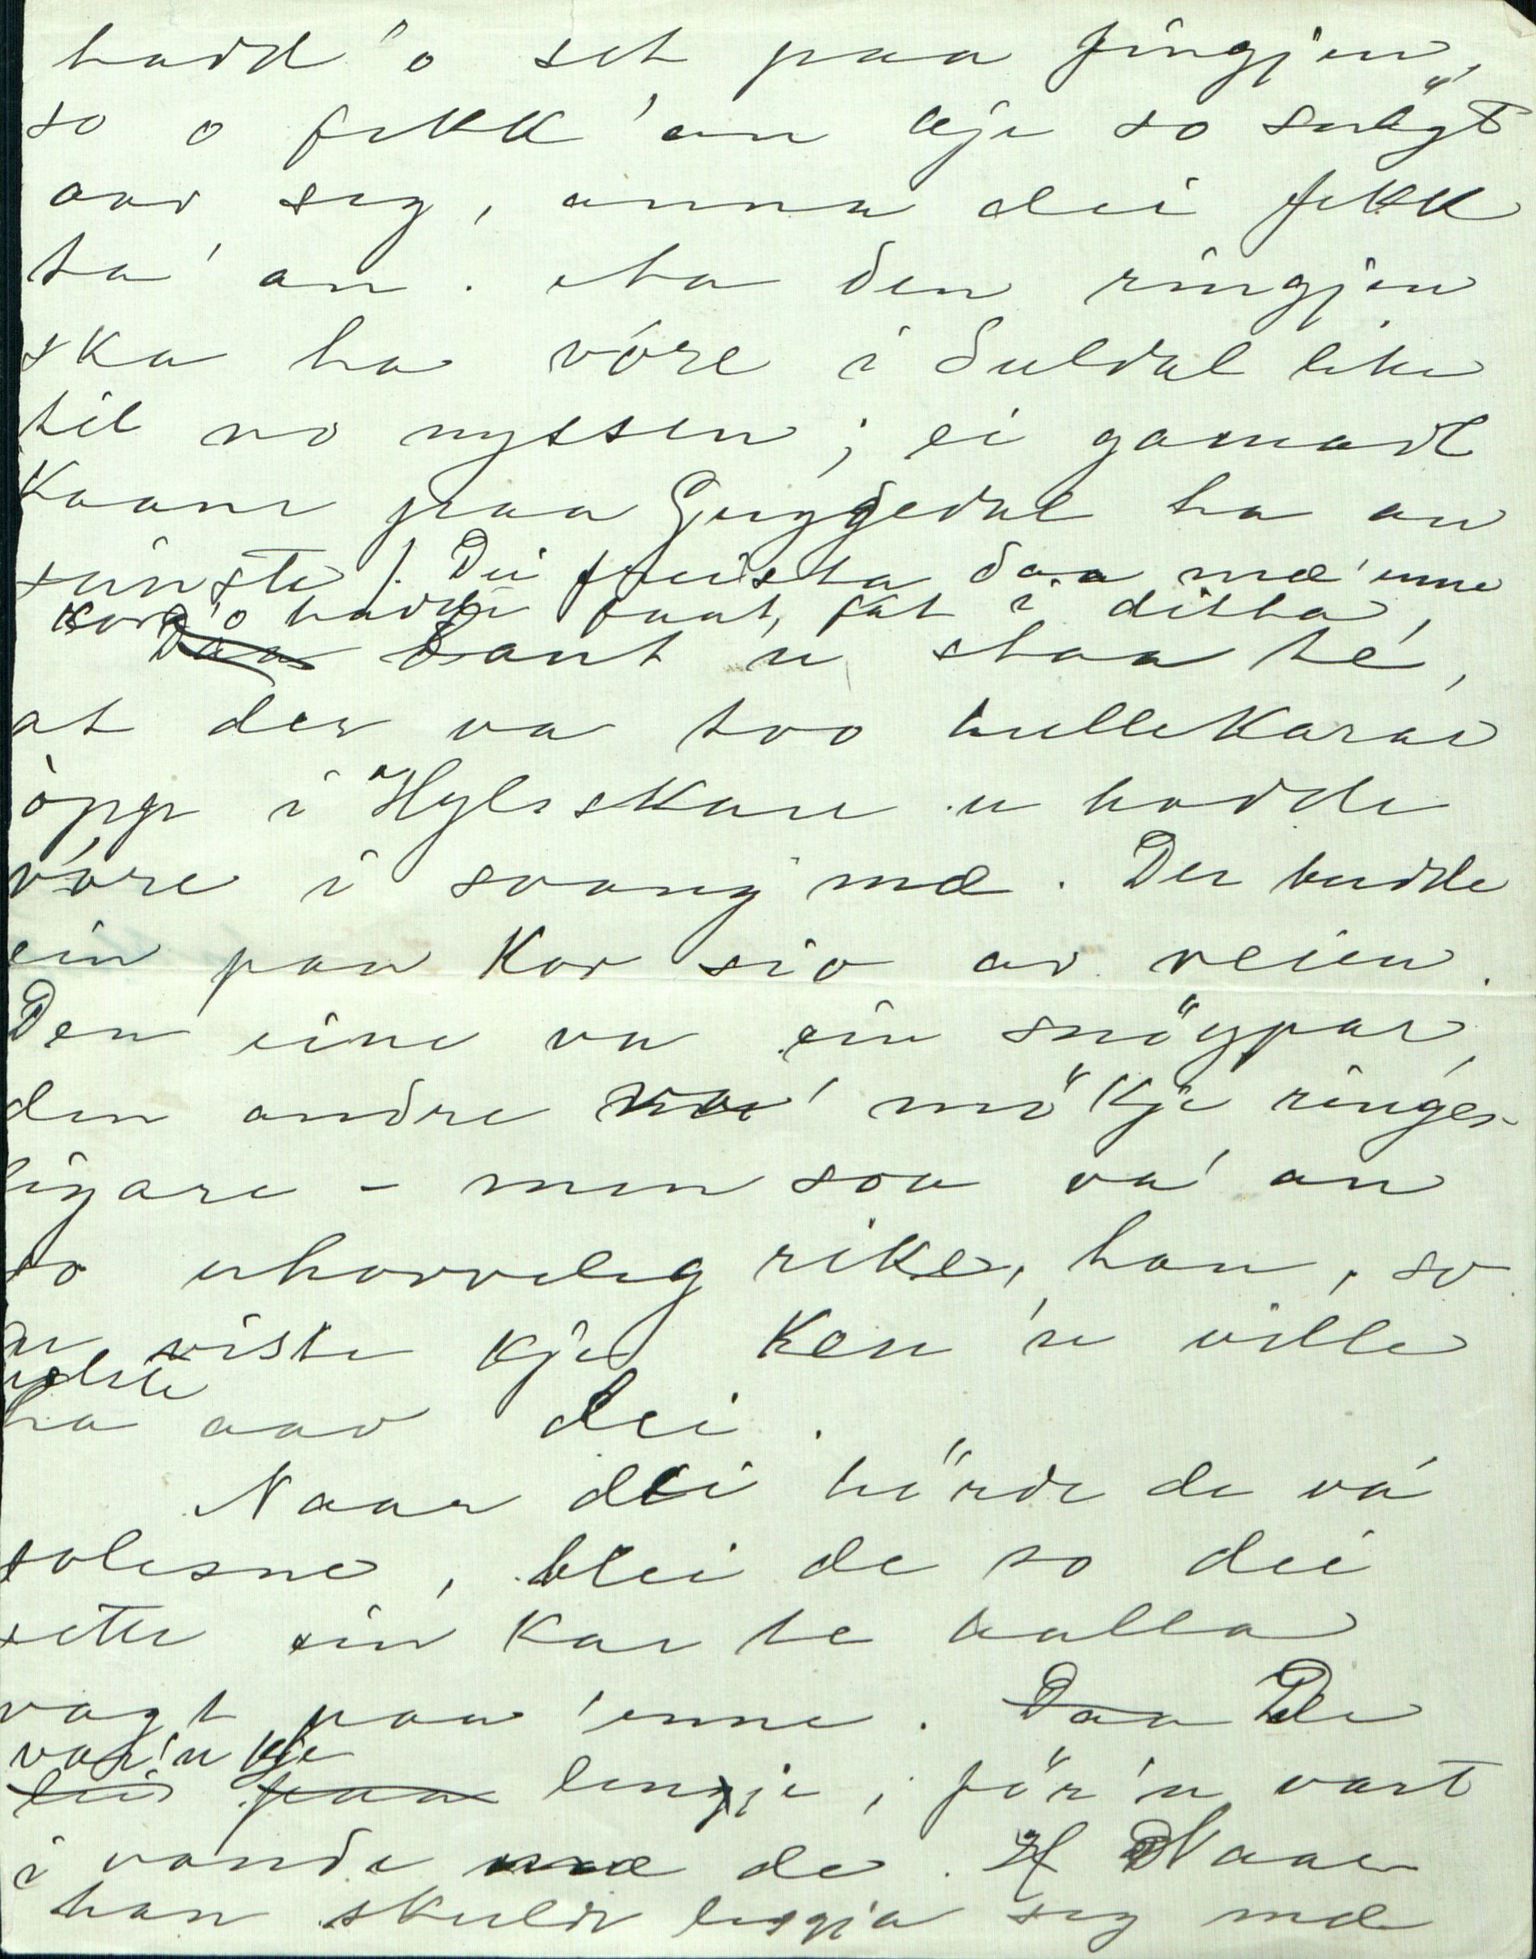 hadd'o set paa fingjen,
so o fekk 'an kje so snögt
aav seg, anna dei fekk
ta' an. Ha den ringjen
ska ha vóre i Suldal like
til no nyssen; ei gamadl
Kaane paa Guggedal ha an
sinste). Dei freista daa mæ 'enne
kor'o hadde faat fat i ditta,
Daa Sant 'u staa té,
at der va too hullekarar
òpp i Hylsskare u hadde
vóre i svang mæ. Der budde
ein paa Kor sio av veien.
Den eine va ein snöypar,
den andre va' mökje ringés-
ligare - men soa va' an
so uhorveleg rike, han, so
u viste kje Ken 'u ville
helste
ha aav dei.
Naar dei hörde de vá
solesne, blei de so dei
sette ein Kar te halla
vagt paa 'enne. Daa De
var'u kje
lengje, för'u vart
i vonde mæ de. Naar
han skulde leggja seg mæ